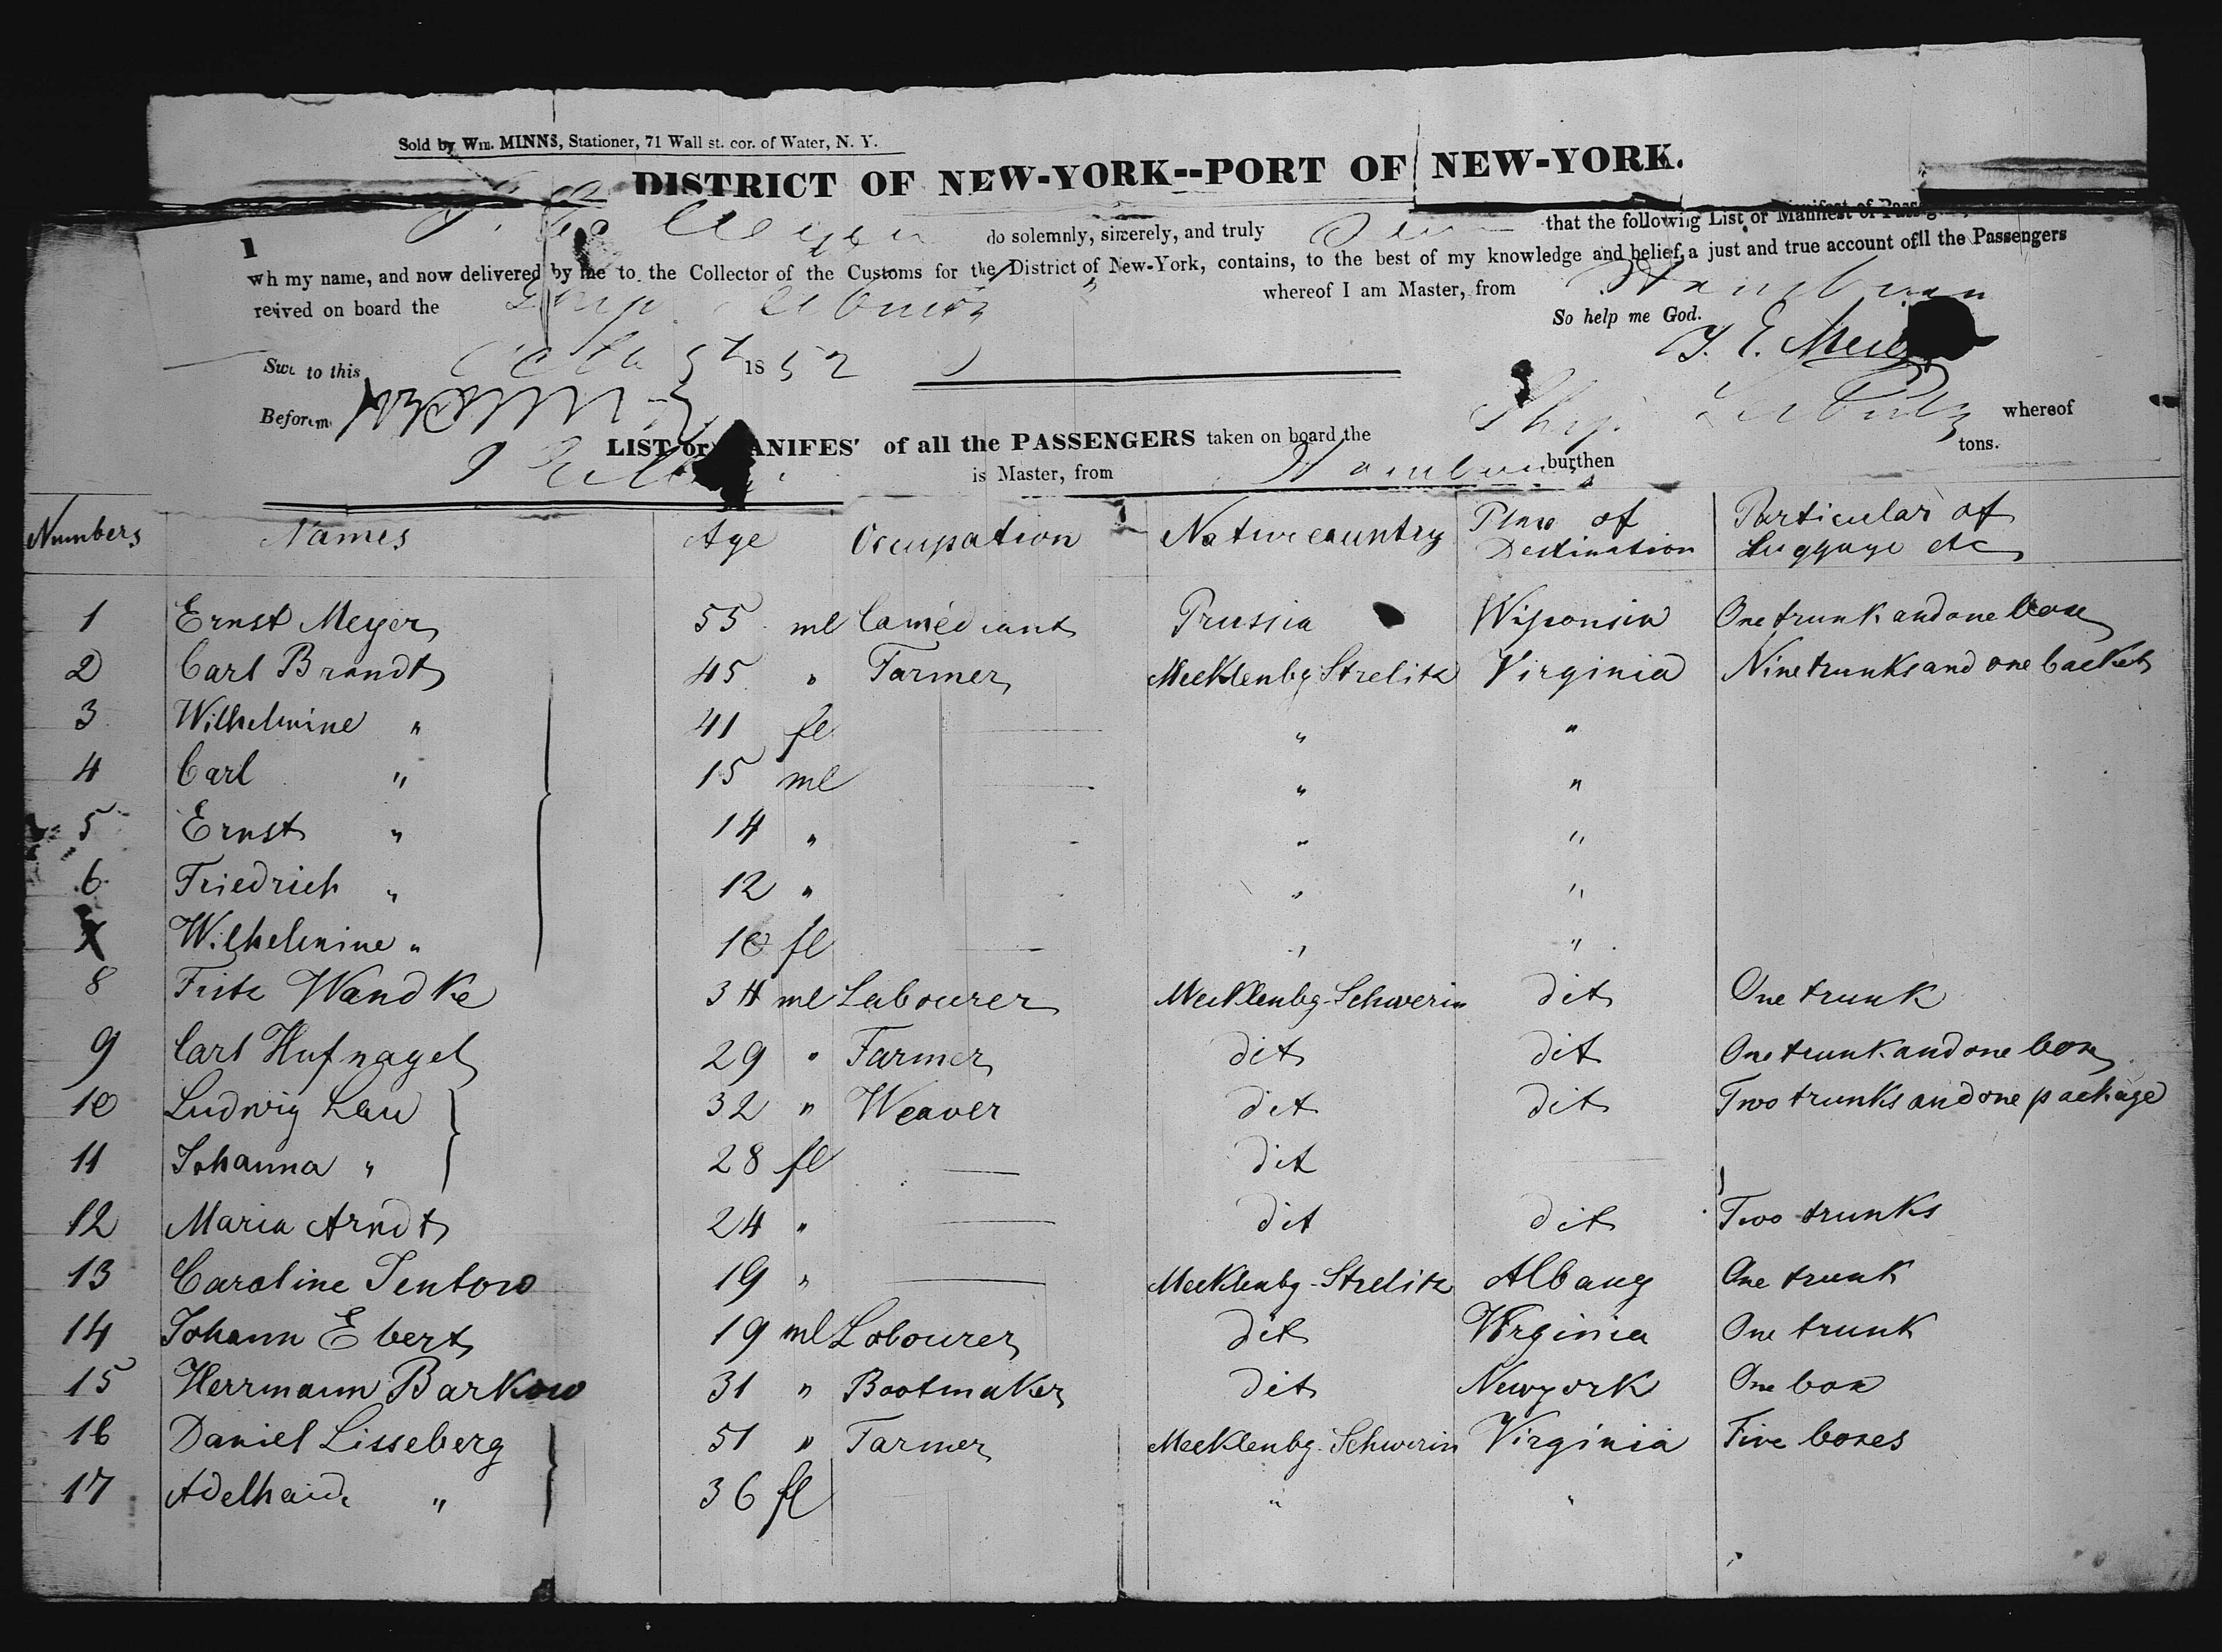 Sold by Wm. MINNS, Stationer, 71 Wall st. cor. of Water, N. Y.
DISTRICT OF NEW-YORK--PORT OF NEW-YORK.
1 do solemnly, sincerely, and truly that the following List or Manifest of
wh my name, and now delivered by me to the Collector of the Customs for the District of New-York, contains, to the best of my knowledge and belief, a just and true account of ll the Passengers
reived on board the Ship whereof I am Master, from Hamburg
So help me God.
Sw to this 5 1852
Before m
LIST or MANIFES of all the PASSENGERS taken on board the Ship whereof
is Master, from Hamburg burthen tons.
Numbers Names Age Occupation Native country Place of Destination Particular of Luggage etc
1 Ernst Meyer 55 ml Comédiant Prussia Wisponsin One trunk and one box
2 Carl Brandt 45 " Farmer Mecklenbg Strelitz Virginia Nine trunks and one basket
3 Wilhelmine " 41 fl " "
4 Carl " 15 ml " "
5 Ernst " 14 " " "
6 Friedrich " 12 " " "
Wilhelmine " 10 fl " "
8 Fritz Wandke 34 ml Labourer Mecklenbg-Schwerin dit One trunk
9 Carl Hufnagel 29 " Farmer dit dit One trunk and one box
10 Ludwig Lau 32 " Weaver dit dit Two trunks and one package
11 Johanna " 28 fl dit
12 Maria Arndt 24 " dit dit Two trunks
13 Caroline Tentow 19 " Mecklenbg-Strelitz Albany One trunk
14 Johann Ebert 19 ml Labourer dit Virginia One trunk
15 Herrmann Barkow 31 " Bootmaker dit Newyork One box
16 Daniel Lisseberg 51 " Farmer Mecklenbg-Schwerin Virginia Five boxes
17 Adelhaide " 36 fl " "